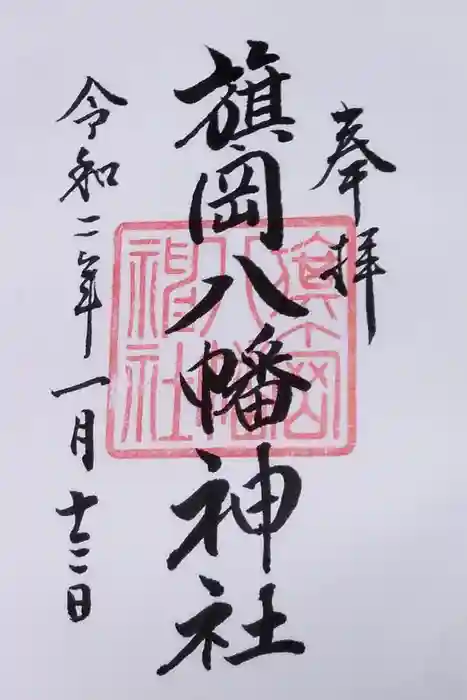 奉拝
旗岡八幡神社
令和二年一月十二日
旗岡八幡神社